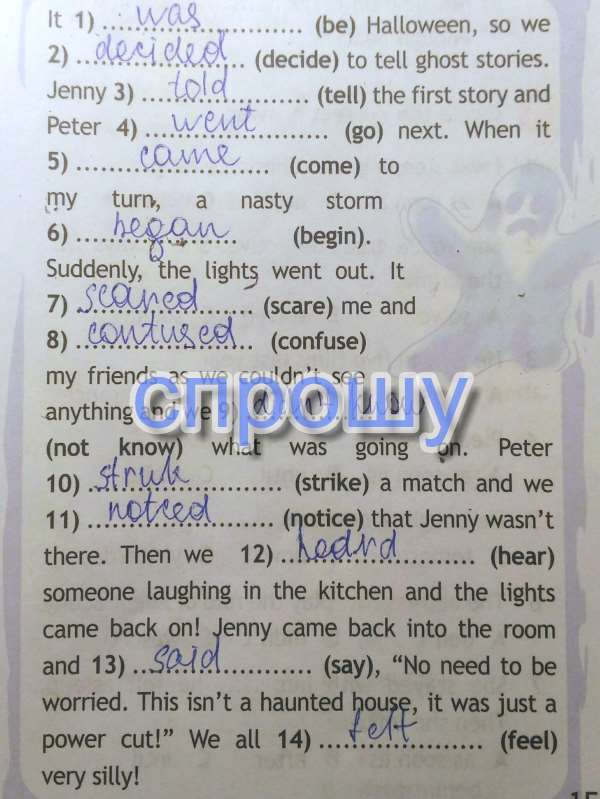 It 1) was (be) Halloween, so we
2) decided (decide) to tell ghost stories.
Jenny 3) told (tell) the first story and
Peter 4) went (go) next. When it
5) came (come) to
my turn, a nasty storm
6) began (begin).
Suddenly, the lights went out. It
7) scared (scare) me and
8) contused (confuse)
my friends as we couldn't see
anything and we 9) didn't know
спрошу
(not know) what was going on. Peter
10) struk (strike) a match and we
11) notced (notice) that Jenny wasn't
there. Then we 12) heard (hear)
someone laughing in the kitchen and the lights
came back on! Jenny came back into the room
and 13) said (say), “No need to be
worried. This isn't a haunted house, it was just a
power cut!” We all 14) felt (feel)
very silly!